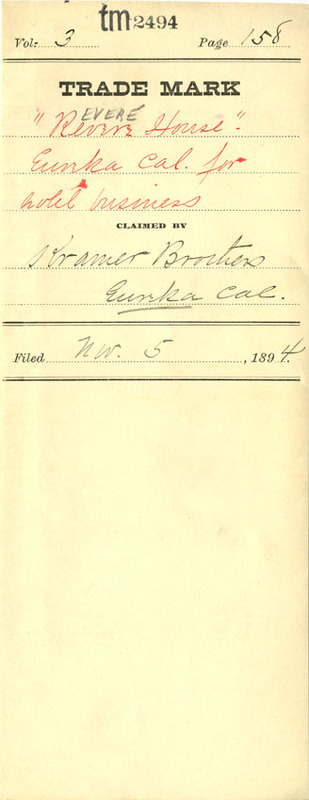 tm 2494
Vol. 3 Page 158
TRADE MARK
EVERE
"Revire House".
Eureka Cal. for
hotel business
CLAIMED BY
Kramer Brothers
Eureka Cal.
Filed Nov. 5, 1894.